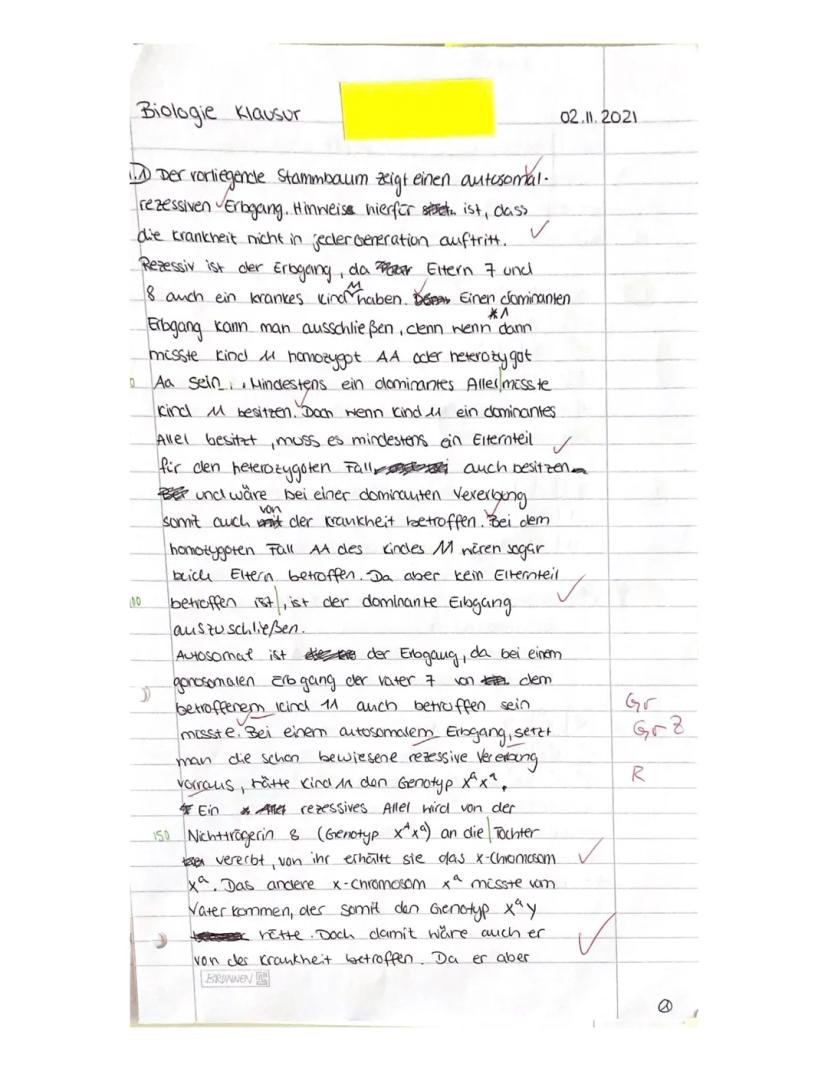 Biologie Klausur
02.11.2021
1.1) Der vorliegende Stammbaum zeigt einen autosomal-
rezessiven Erbgang. Hinweise hierfür ist, dass
die Krankheit nicht in jeder Generation auftritt.
Rezessiv ist der Erbgang, da Eltern 7 und
8 auch ein krankes Kind 11 haben. Einen dominanten
*1
Erbgang kann man ausschließen, denn wenn dann
müsste Kind 11 homozygot AA oder heterozygot
Aa sein. Mindestens ein dominantes Allel müsste
Kind 11 besitzen. Doch wenn Kind 11 ein dominantes
Allel besitzt, muss es mindestens ein Elternteil
für den heterozygoten Fall auch besitzen
und wäre bei einer dominanten Vererbung
somit auch von der Krankheit betroffen. Bei dem
homozygoten Fall AA des Kindes 11 wären sogar
beide Eltern betroffen. Da aber kein Elternteil
100 betroffen ist, ist der dominante Erbgang
auszuschließen.
Autosomal ist der Erbgang, da bei einem
gonosomalen Erbgang der Vater 7 von dem
betroffenem Kind 11 auch betroffen sein Gr
müsste. Bei einem autosomalem Erbgang, setzt Gr Z
man die schon bewiesene rezessive Vererbung
vorraus, hätte Kind 11 den Genotyp XᵃXᵃ. R
Ein rezessives Allel wird von der
150 Nichtträgerin 8 (Genotyp XᴬXᵃ) an die Tochter
vererbt, von ihr erhält sie das X-Chromosom
Xᵃ. Das andere X-Chromosom Xᵃ müsste vom
Vater kommen, der somit den Genotyp XᵃY
hätte. Doch damit wäre auch er
von der Krankheit betroffen. Da er aber
BRUNNEN